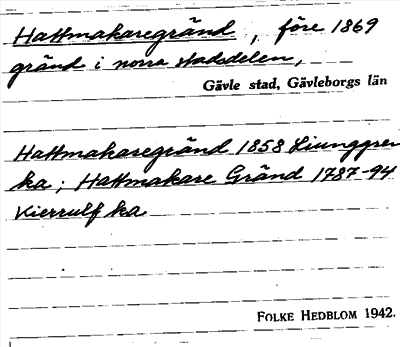 Hattmakaregränd, före 1869
gränd i norra stadsdelen,
Gävle stad, Gävleborgs län
Hattmakaregränd 1858 Ljunggren
ka; Hattmakare Gränd 1787-94
Kierrulf ka
FOLKE HEDBLOM 1942.